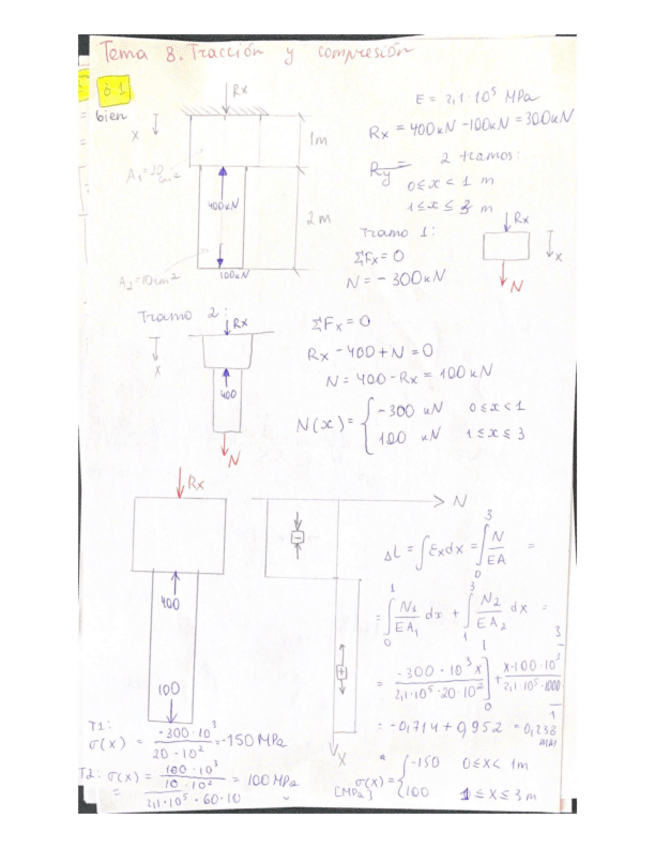 Tema 8. Tracción y compresión
8.1
bien
x
Rx
1m
A₁=20 cm²
400kN
2 m
A₂=10cm²
100kN
E = 2,1·10⁵ MPa
Rx = 400kN -100kN = 300kN
Ry = 2 tramos:
0≤x< 1 m
1≤x≤ 3 m
Tramo 1:
ΣFx=0
N= - 300kN
Rx
x
N
Tramo 2:
Rx
x
400
N
ΣFx=0
Rx - 400 + N = 0
N= 400 - Rx = 100 kN
N(x)= { -300 kN 0≤x<1
100 kN 1≤x≤3
Rx
400
100
N
-
+
x
ΔL = ∫ εx dx = ∫₀³ N/EA =
= ∫₀¹ N₁/EA₁ dx + ∫₁³ N₂/EA₂ dx =
= -300·10³x/2,1·10⁵·20·10² ]₀¹ + x·100·10³/2,1·10⁵·1000 ]₁³
= -0,714 + 0,952 = 0,238 mm
T1:
σ(x) = -300·10³/20·10² = -150 MPa
T2: σ(x) = 100·10³/10·10² = 100 MPa
=
2,1·10⁵·60·10
σ(x)= { -150 0≤x< 1m
[MPa] 100 1≤x≤3m